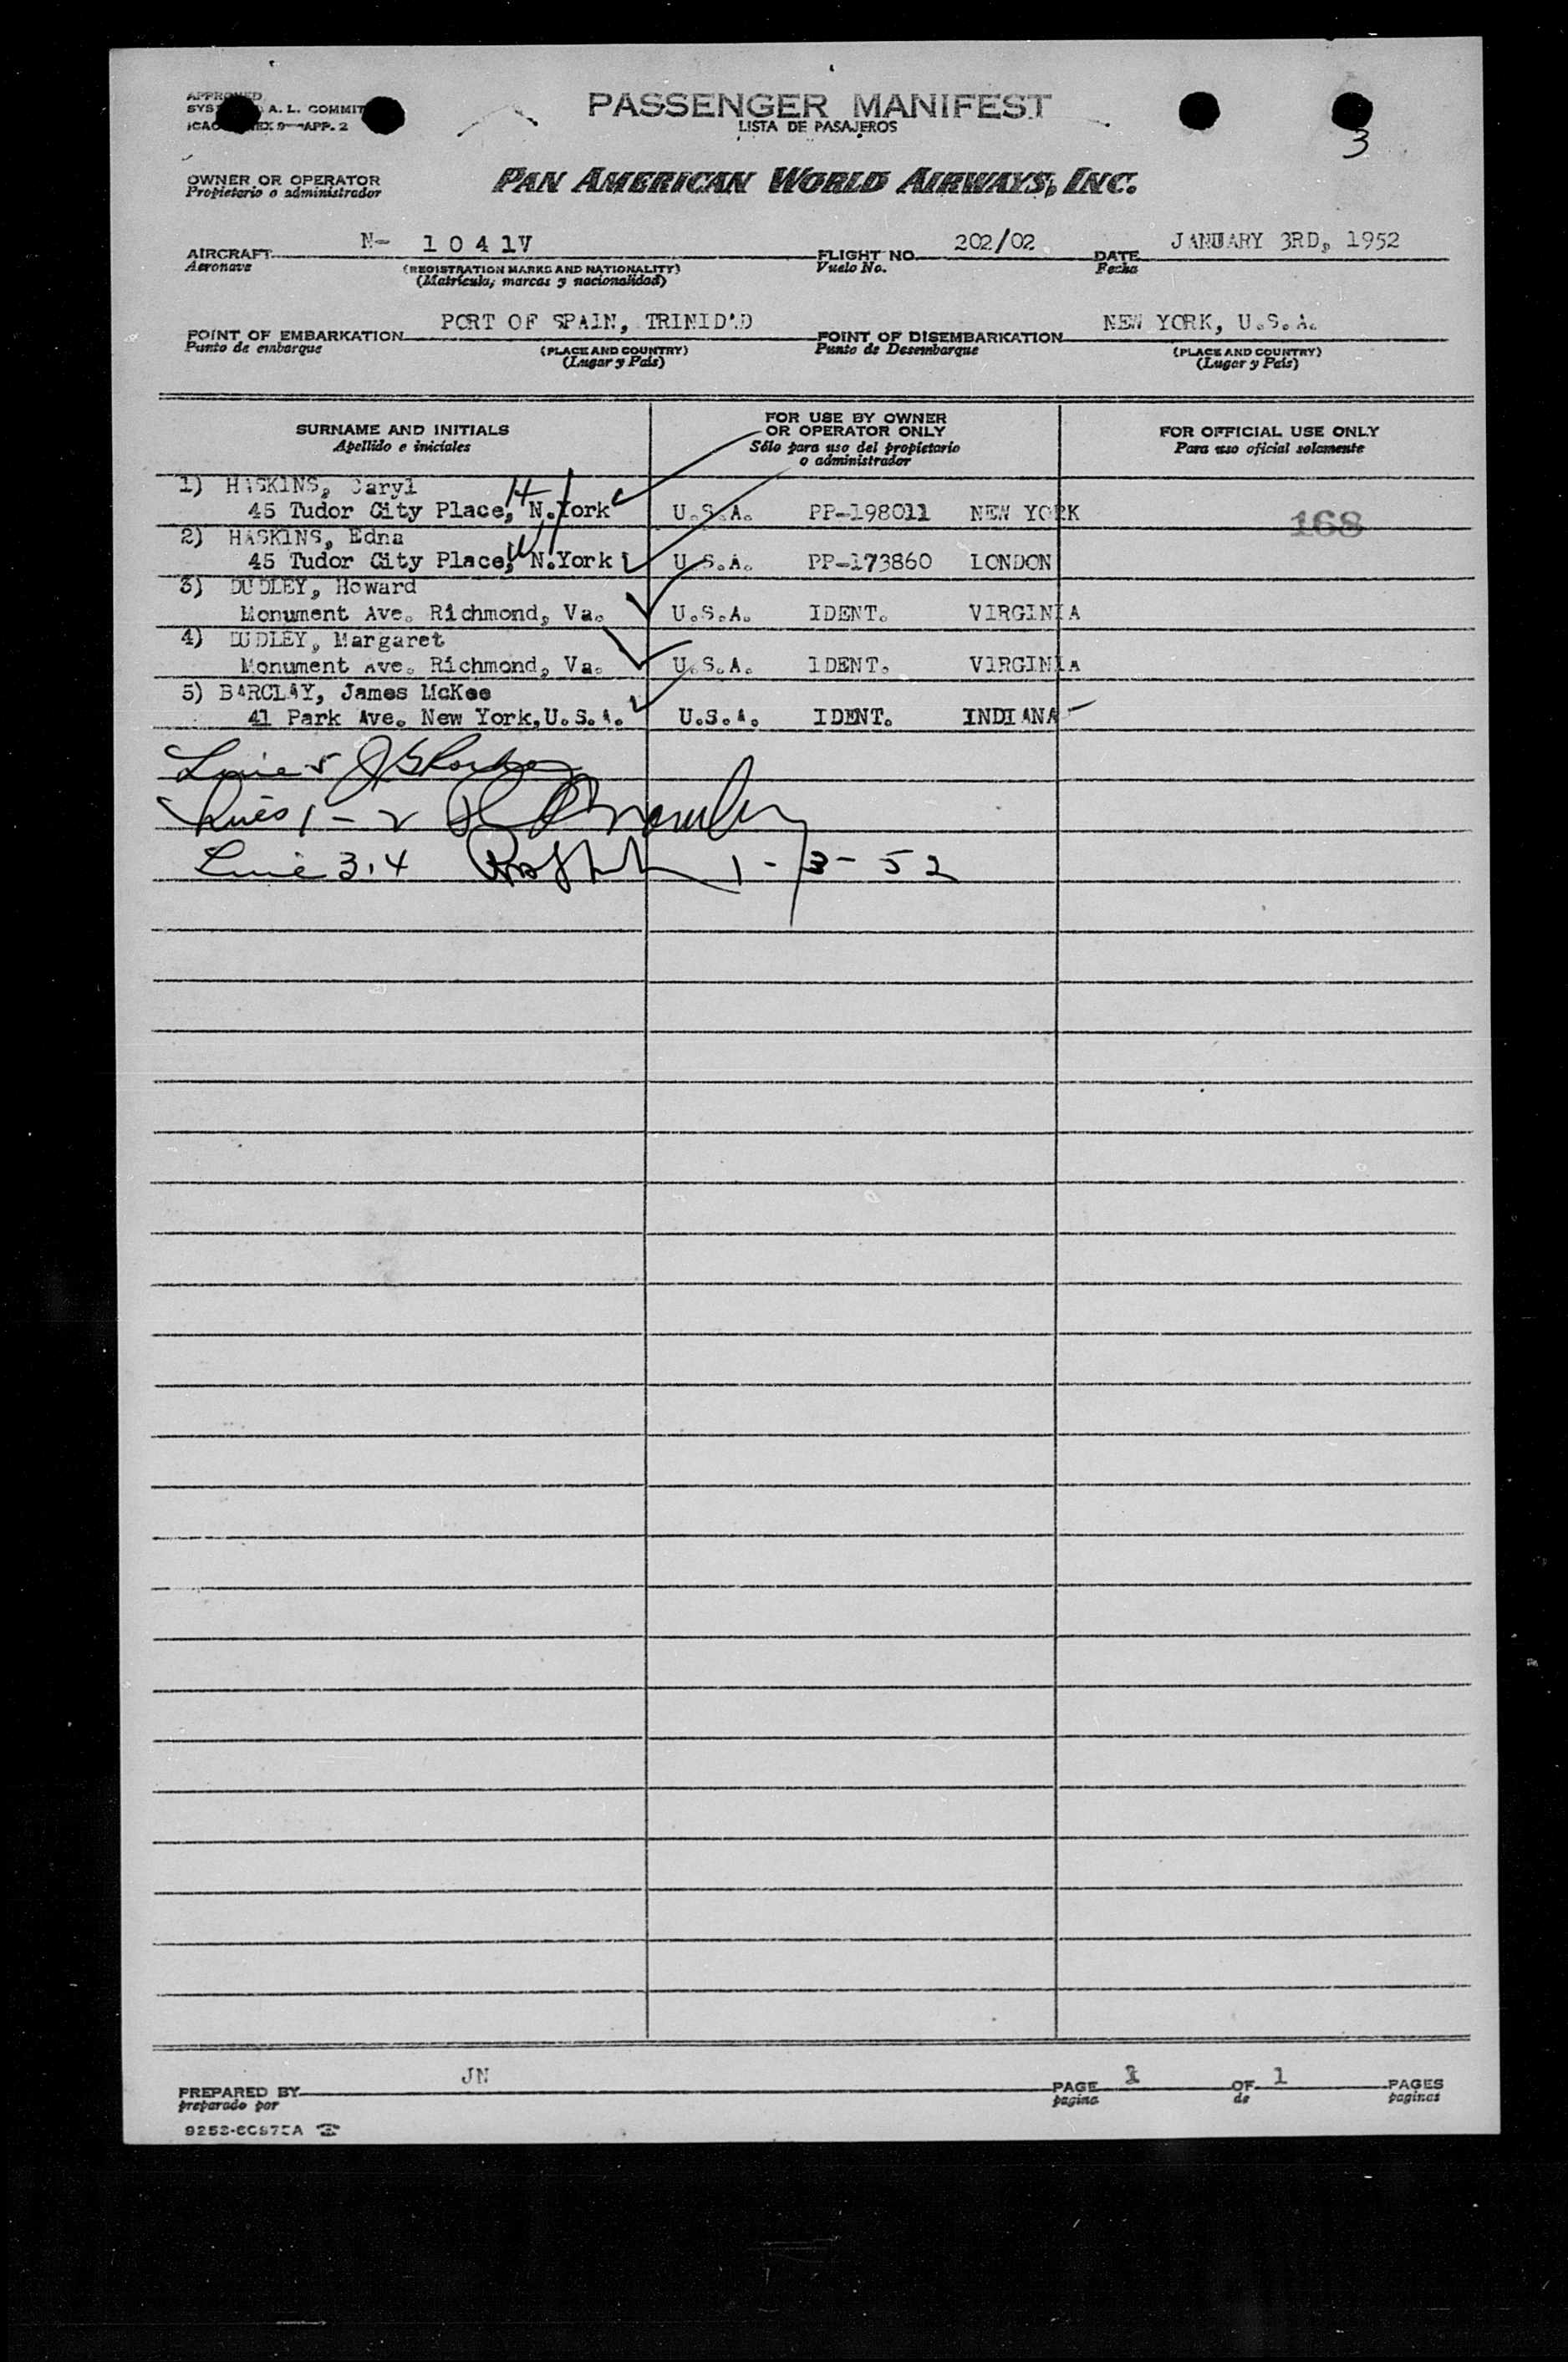 APPROVED
SYS A. L. COMMIT
ICAO EX 9—APP. 2
PASSENGER MANIFEST
LISTA DE PASAJEROS
3
OWNER OR OPERATOR
Propietario o administrador
PAN AMERICAN WORLD AIRWAYS, INC.
AIRCRAFT N- 1 0 4 1V FLIGHT NO. 202/02 DATE JANUARY 3RD, 1952
Aeronave (REGISTRATION MARKS AND NATIONALITY) Vuelo No. Fecha
(Matrícula, marcas y nacionalidad)
POINT OF EMBARKATION PORT OF SPAIN, TRINIDAD POINT OF DISEMBARKATION NEW YORK, U.S.A.
Punto de embarque (PLACE AND COUNTRY) Punto de Desembarque (PLACE AND COUNTRY)
(Lugar y País) (Lugar y País)
SURNAME AND INITIALS
Apellido e iniciales
FOR USE BY OWNER
OR OPERATOR ONLY
Sólo para uso del propietario
o administrador
FOR OFFICIAL USE ONLY
Para uso oficial solamente
1) HASKINS, Caryl H
45 Tudor City Place, N.York U.S.A. PP-198011 NEW YORK 168
2) HASKINS, Edna W
45 Tudor City Place, N.York U.S.A. PP-173860 LONDON
3) DUDLEY, Howard
Monument Ave. Richmond, Va. U.S.A. IDENT. VIRGINIA
4) DUDLEY, Margaret
Monument Ave. Richmond, Va. U.S.A. IDENT. VIRGINIA
5) BARCLAY, James McKee
41 Park Ave. New York,U.S.A. U.S.A. IDENT. INDIANA
Line 5
Lines 1 - 2
Line 3.4 1-3-52
PREPARED BY JN PAGE 1 OF 1 PAGES
preparado por pagina de paginas